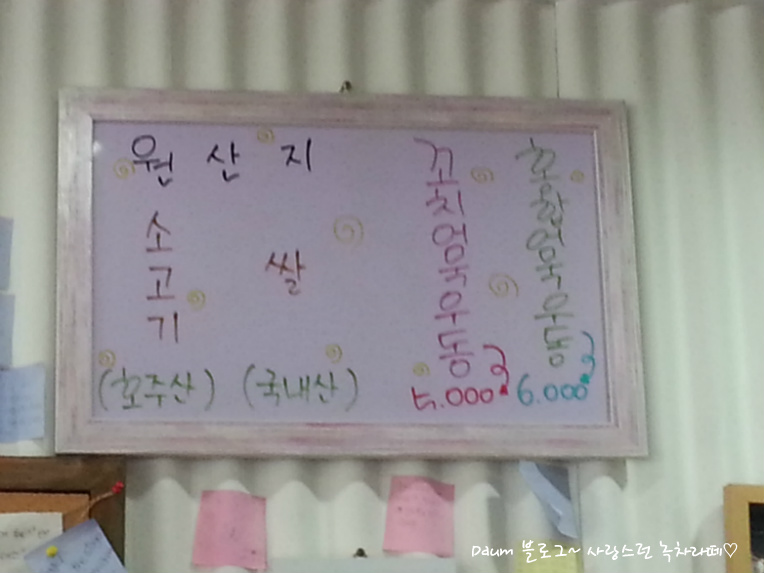 원산지
소고기
(호주산)
쌀
(국내산)
꼬치어묵우동
5.000
혼합어묵우동
6.000
Daum 블로그~ 사랑스런 녹차라떼♡